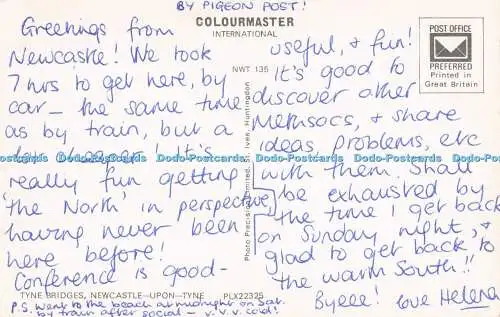 BY PIGEON POST!
COLOURMASTER
INTERNATIONAL
NWT 135
POST OFFICE
PREFERRED
Printed in
Great Britain
Greetings from
Newcastle! We took
7 hrs to get here, by
car – the same time
as by train, but a
lot cheaper! It's
really fun getting
'the North' in perspective,
having never been
here before!
Conference is good –
useful, & fun!
It's good to
discover other
Methsocs, & share
ideas, problems, etc
with them. Shall
be exhausted by
the time I get back
on Sunday night, &
glad to get back to
the warm South!!
Byeee! love Helena
Photo Precision Limited, St. Ives, Huntingdon
TYNE BRIDGES, NEWCASTLE-UPON-TYNE PLX22325
P.S. Went to the beach at midnight on Sat.
by train after social – v.v.v. cold!
Dodo-Postcards Dodo-Postcards Dodo-Postcards Dodo-Postcards Dodo-Postcards Dodo-Postcards